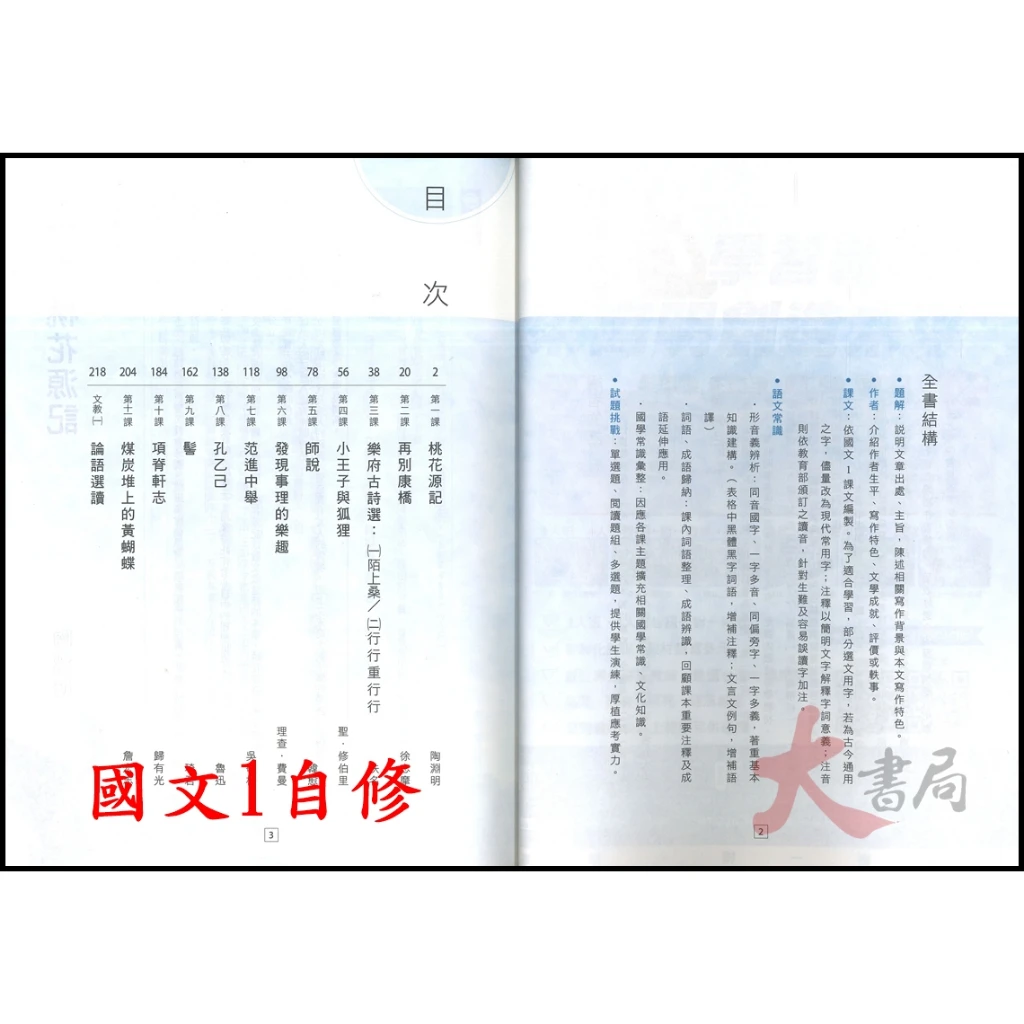 全書結構
• 題解：說明文章出處、主旨，陳述相關寫作背景與本文寫作特色。
• 作者：介紹作者生平、寫作特色、文學成就、評價或軼事。
• 課文：依國文 1 課文編製。為了適合學習，部分選文用字，若為古今通用
之字，儘量改為現代常用字；注釋以簡明文字解釋字詞意義；注音
則依教育部頒訂之讀音，針對生難及容易誤讀字加注。
• 語文常識
．形音義辨析：同音國字、一字多音、同偏旁字、一字多義，著重基本
知識建構。（表格中黑體黑字詞語，增補注釋；文言文例句，增補語
譯）
．詞語、成語歸納：課內詞語整理、成語辨識，回顧課本重要注釋及成
語延伸應用。
．國學常識彙整：因應各課主題擴充相關國學常識、文化知識。
• 試題挑戰：單選題、閱讀題組、多選題，提供學生演練，厚植應考實力。
2
大書局
目次
2 第一課 桃花源記 陶淵明
20 第二課 再別康橋
38 第三課 樂府古詩選：㈠陌上桑／㈡行行重行行
56 第四課 小王子與狐狸 聖．修伯里
78 第五課 師說
98 第六課 發現事理的樂趣 理查．費曼
118 第七課 范進中舉
138 第八課 孔乙己 魯迅
162 第九課 髻
184 第十課 項脊軒志 歸有光
204 第十一課 煤炭堆上的黃蝴蝶 詹
218 文教㈠ 論語選讀
3
國文1自修